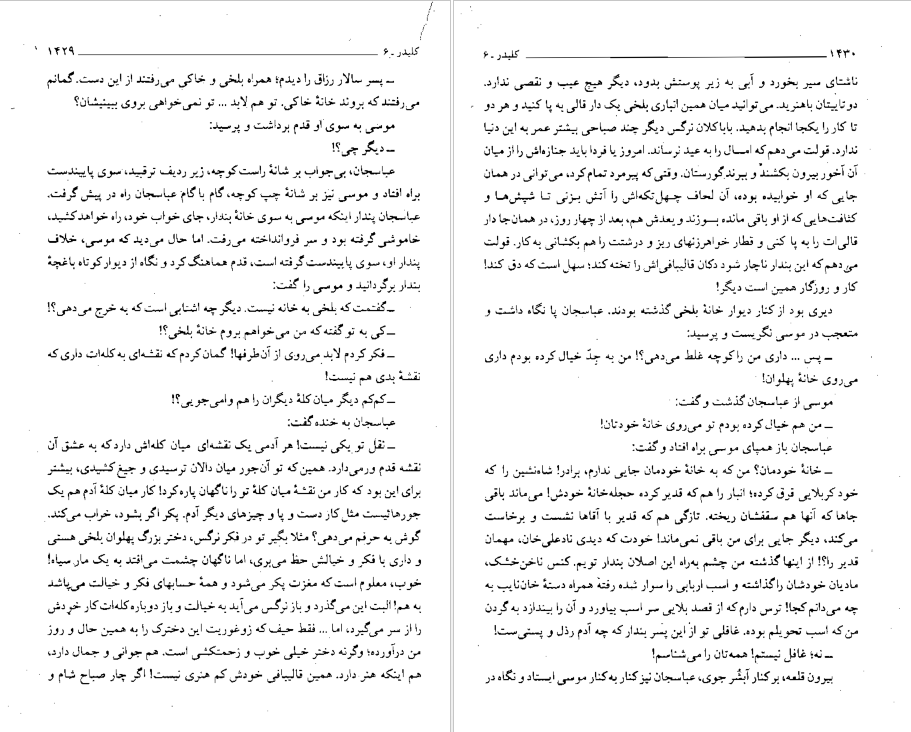 کلیدر ـ ۶ ۱۴۲۹
ـ پسر سالار رزاق را دیدم؛ همراه بلخی و خاکی می‌رفتند از این دست. گمانم
می‌رفتند که بروند خانهٔ خاکی. تو هم لابد ... تو نمی‌خواهی بروی ببینیشان؟
موسی به سوی او قدم برداشت و پرسید:
ـ دیگر چی؟!
عباسجان، بی‌جواب بر شانهٔ راست کوچه، زیر ردیف ترقبید، سوی پایین‌دست
براه افتاد و موسی نیز بر شانهٔ چپ کوچه، گام با گام عباسجان راه در پیش گرفت.
عباسجان پندار اینکه موسی به سوی خانهٔ بندار، جای خواب خود، راه خواهد کشید،
خاموشی گرفته بود و سر فروانداخته می‌رفت. اما حال می‌دید که موسی، خلاف
پندار او، سوی پایین‌دست گرفته است، قدم هماهنگ کرد و نگاه از دیوار کوتاه باغچهٔ
بندار برگردانید و موسی را گفت:
ـ گفتمت که بلخی به خانه نیست. دیگر چه اشتابی است که به خرج می‌دهی؟!
ـ کی به تو گفته که من می‌خواهم بروم خانهٔ بلخی؟!
ـ فکر کردم لابد می‌روی از آن‌طرفها! گمان کردم که نقشه‌ای به کله‌ات داری که
نقشهٔ بدی هم نیست!
ـ کم‌کم دیگر میان کلهٔ دیگران را هم وامی‌جویی؟!
عباسجان به خنده گفت:
ـ نقل تو یکی نیست! هر آدمی یک نقشه‌ای میان کله‌اش دارد که به عشق آن
نقشه قدم ورمی‌دارد. همین که تو آن‌جور میان دالان ترسیدی و جیغ کشیدی، بیشتر
برای این بود که کار من نقشهٔ میان کلهٔ تو را ناگهان پاره کرد! کار میان کلهٔ آدم هم یک
جورهائیست مثل کار دست و پا و چیزهای دیگر آدم. پکر اگر بشود، خراب می‌کند.
گوش به حرفم می‌دهی؟ مثلا بگیر تو در فکر نرگس، دختر بزرگ پهلوان بلخی هستی
و داری با فکر و خیالش حظ می‌بری، اما ناگهان چشمت می‌افتد به یک مار سیاه!
خوب، معلوم است که مغزت پکر می‌شود و همهٔ حسابهای فکر و خیالت می‌پاشد
به هم! البت این می‌گذرد و باز نرگس می‌آید به خیالت و باز دوباره کله‌ات کار خودش
را از سر می‌گیرد، اما ... فقط حیف که زوغوریت این دخترک را به همین حال و روز
من درآورده؛ وگرنه دختر خیلی خوب و زحمتکشی است. هم جوانی و جمال دارد،
هم اینکه هنر دارد. همین قالیبافی خودش کم هنری نیست! اگر چار صباح شام و
۱۴۳۰ کلیدر ـ ۶
ناشتای سیر بخورد و آبی به زیر پوستش بدود، دیگر هیچ عیب و نقصی ندارد.
دو تاییتان باهنرید. می‌توانید میان همین انباری بلخی یک دار قالی به پا کنید و هر دو
تا کار را یکجا انجام بدهید. باباکلان نرگس دیگر چند صباحی بیشتر عمر به این دنیا
ندارد. قولت می‌دهم که امسال را به عید نرساند. امروز یا فردا باید جنازه‌اش را از میان
آن آخور بیرون بکشند و ببرند گورستان. وقتی که پیرمرد تمام کرد، می‌توانی در همان
جایی که او خوابیده بوده، آن لحاف چهل‌تکه‌اش را آتش بزنی تا شپش‌ها و
کثافت‌هایی که از او باقی مانده بسوزند و بعدش هم، بعد از چهار روز، در همان جا دار
قالی‌ات را به پا کنی و قطار خواهرزنهای ریز و درشتت را هم بکشانی به کار. قولت
می‌دهم که این بندار ناچار شود دکان قالیبافی‌اش را تخته کند؛ سهل است که دق کند!
کار و روزگار همین است دیگر!
دیری بود از کنار دیوار خانهٔ بلخی گذشته بودند. عباسجان پا نگاه داشت و
متعجب در موسی نگریست و پرسید:
ـ پس ... داری من را کوچه غلط می‌دهی؟! من به جِدّ خیال کرده بودم داری
می‌روی خانهٔ پهلوان!
موسی از عباسجان گذشت و گفت:
ـ من هم خیال کرده بودم تو می‌روی خانهٔ خودتان!
عباسجان باز همپای موسی براه افتاد و گفت:
ـ خانهٔ خودمان؟ من که به خانهٔ خودمان جایی ندارم، برادر! شاه‌نشین را که
خود کربلایی قرق کرده؛ انبار را هم که قدیر کرده حجله‌خانهٔ خودش! می‌ماند باقی
جاها که آنها هم سقفشان ریخته. تازگی هم که قدیر با آقاها نشست و برخاست
می‌کند، دیگر جایی برای من باقی نمی‌ماند! خودت که دیدی نادعلی‌خان، مهمان
قدیر را؟! از اینها گذشته من چشم به‌راه این اصلان بندار تویم. کنس ناخن‌خشک،
مادیان خودشان را گذاشته و اسب اربابی را سوار شده رفته همراه دستهٔ خان‌نایب به
چه می‌دانم کجا! ترس دارم که از قصد بلایی سر اسب بیاورد و آن را بیندازد به گردن
من که اسب تحویلم بوده. غافلی تو از این پسر بندار که چه آدم رذل و پستی‌ست!
ـ نه؛ غافل نیستم! همه‌تان را می‌شناسم!
بیرون قلعه، بر کنار آبشُر جوی، عباسجان نیز کنار به کنار موسی ایستاد و نگاه در